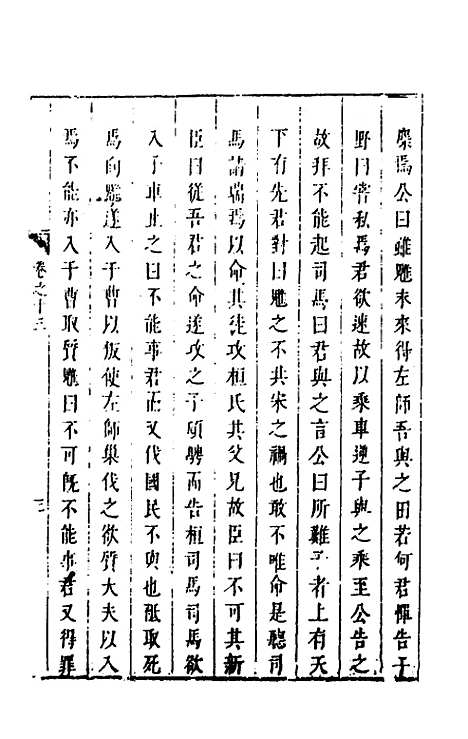 麋焉公曰雖魋未來得左師吾與之田若何君憚告子
野曰嘗私焉君欲速故以乘車逆子與之乘至公告之
故拜不能起司馬曰君與之言公曰所難子者上有天
下有先君對曰魋之不共宋之禍也敢不唯命是聽司
馬請瑞焉以命其徒攻桓氏其父兄故臣曰不可其新
臣曰從吾君之命遂攻之子頎騁而告桓司馬司馬欲
入子車止之曰不能事君而又伐國民不與也祗取死
焉向魋遂入于曹以叛使左師巢伐之欲質大夫以入
焉不能亦入于曹取質魋曰不可既不能事君又得罪
卷之十三
三